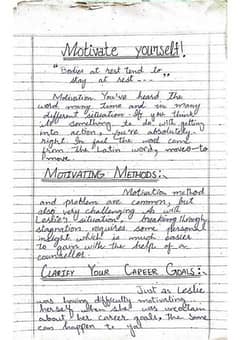 Motivate yourself!
"Bodies at rest tend to
stay at rest - - - "
Motivation. You've heard the
word many time and in many
different situation. If you think
it's something to do with getting
into action, you're absolutely
right. In fact the word came
from the Latin word, moveo-to
move.
MOTIVATING METHODS:-
Motivation method
and problem are common, but
also very challenging. As with
Leslie's situation, breaking through
stagnation requires some personal
insight which is much easier
to gain with the help of a
counsellor.
CLARIFY YOUR CAREER GOALS:-
Just as Leslie
was having difficulty motivating
herself when she was uncertain
about her career goals, the same
can happen to you